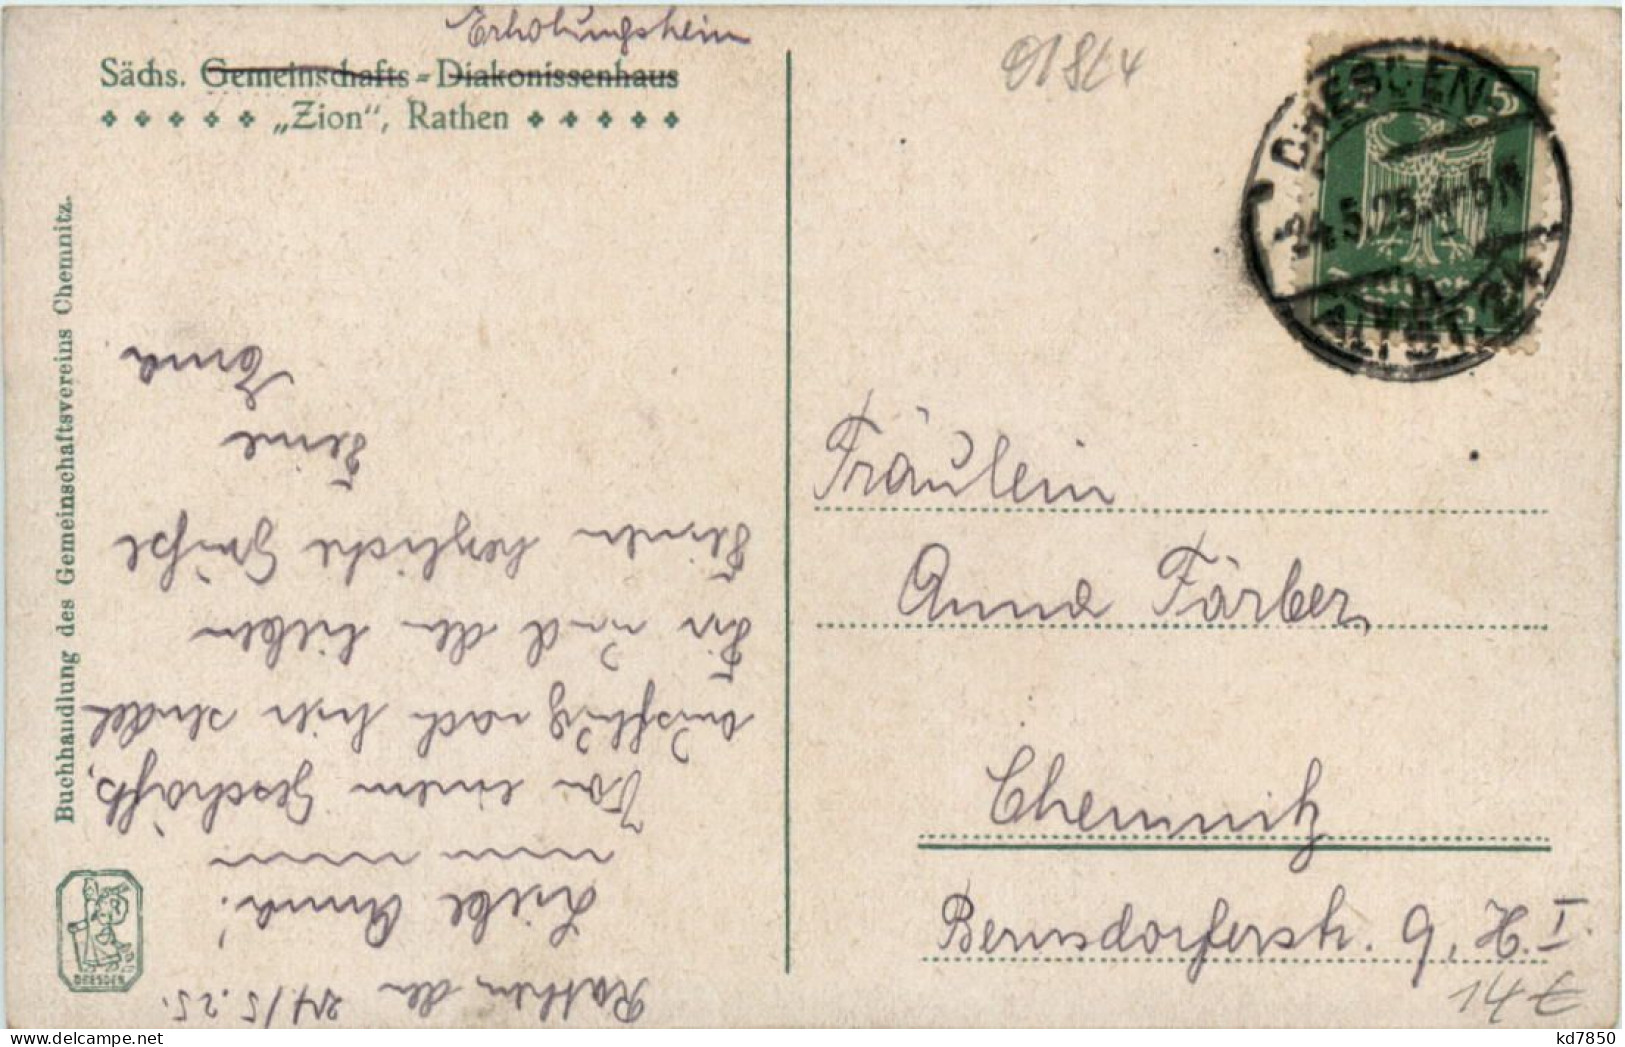 Erholungsheim
Sächs. Gemeinschafts-Diakonissenhaus
„Zion“, Rathen
Buchhandlung des Gemeinschaftsvereins Chemnitz.
DRESDEN
Rathen, den 24/5.25.
Liebe Anna!
Von einem Geschäfts,
ausflug nach hier sendet
Dir und den lieben
Deinen herzliche Grüße
Deine
Erna
DRESDEN-
24.5.25.4-5N
ALTST. 24
n
5
Fräulein
Anna Färber,
Chemnitz
Bernsdorferstr. 9, H. I.
14 £
kd7850